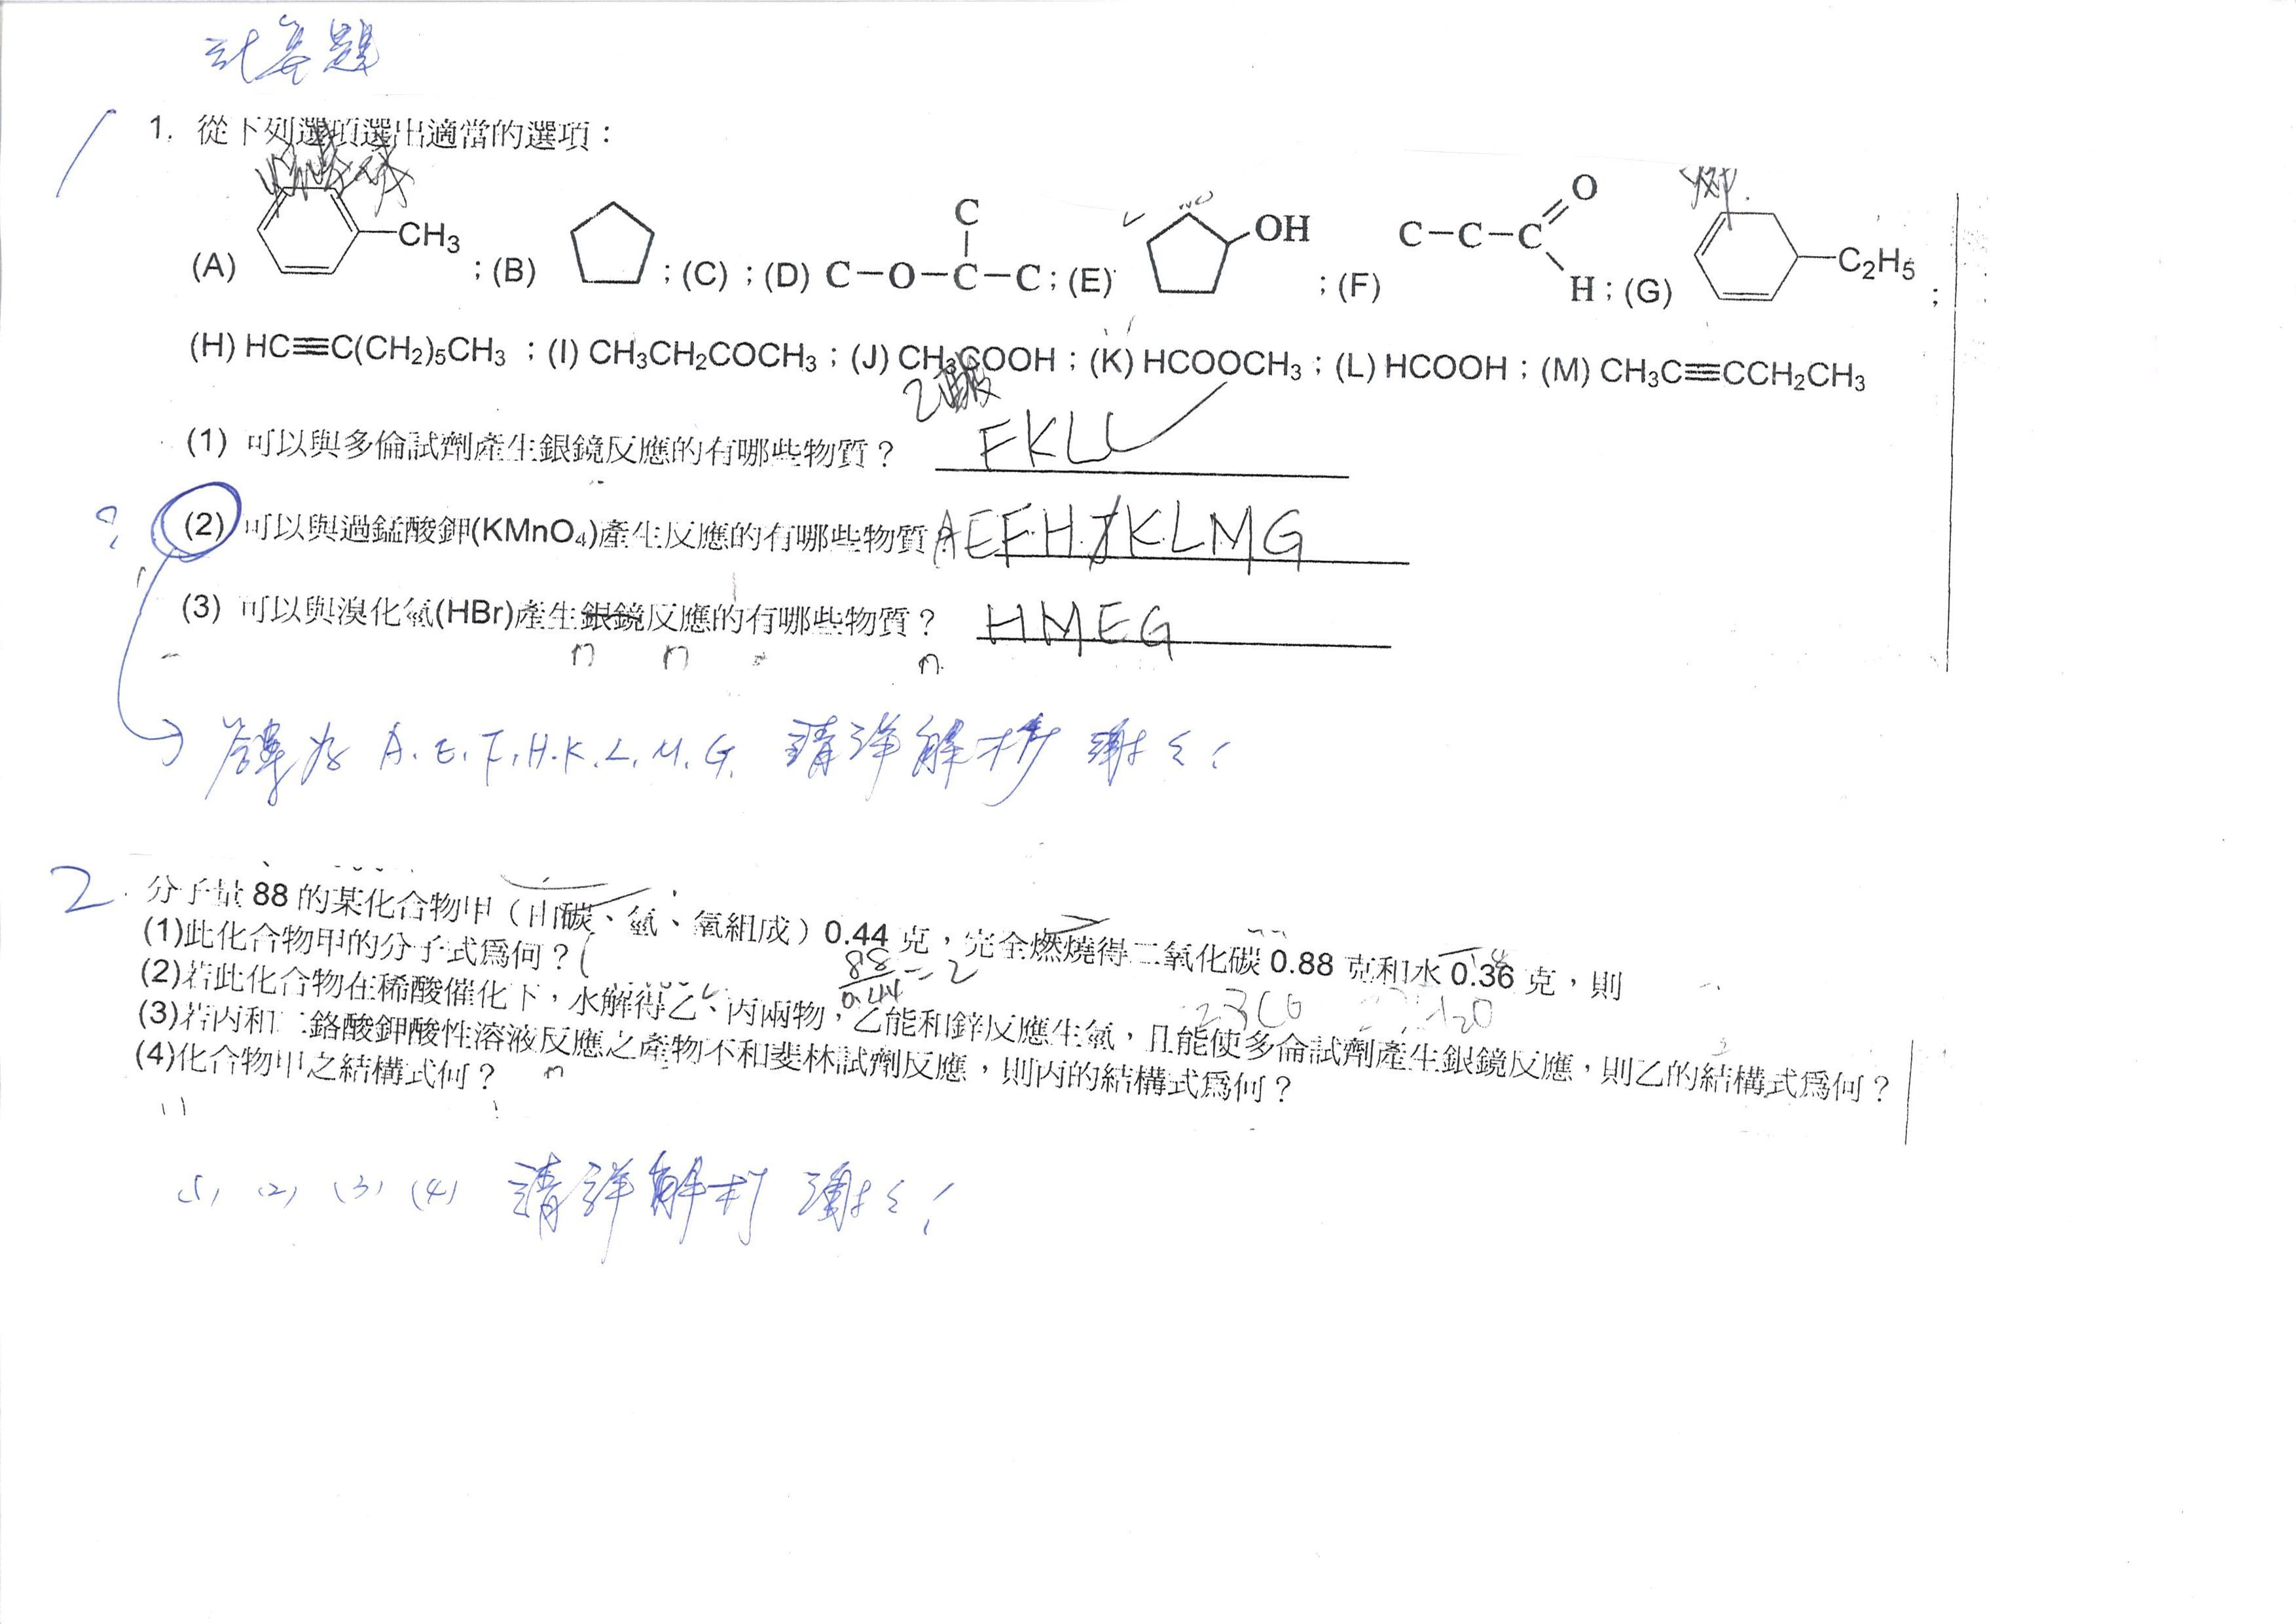 計算題
1. 從下列選項選出適當的選項：
(A) CH3 ; (B) ; (C) ; (D) C-O-C-C ; (E) OH ; (F) C-C-C O H ; (G) C2H5 ;
C
(H) HC≡C(CH2)5CH3 ; (I) CH3CH2COCH3 ; (J) CH3COOH ; (K) HCOOCH3 ; (L) HCOOH ; (M) CH3C≡CCH2CH3
乙酸
(1) 可以與多倫試劑產生銀鏡反應的有哪些物質？ FKL
? (2) 可以與過錳酸鉀(KMnO4)產生反應的有哪些物質 AEFHJKLMG
(3) 可以與溴化氫(HBr)產生銀鏡反應的有哪些物質？ HMEG
n n n
→ 答案為 A.E.F.H.K.L.M.G. 請詳解析 謝謝！
2. 分子量 88 的某化合物甲（由碳、氫、氧組成）0.44 克，完全燃燒得二氧化碳 0.88 克和水 0.36 克，則
(1)此化合物甲的分子式為何？
88/0.44 = 2
(2)若此化合物在稀酸催化下，水解得乙、丙兩物，乙能和鋅反應生氫，且能使多倫試劑產生銀鏡反應，則乙的結構式為何？
(3)若丙和二鉻酸鉀酸性溶液反應之產物不和斐林試劑反應，則丙的結構式為何？
(4)化合物甲之結構式何？
(1) (2) (3) (4) 請詳解析 謝謝！